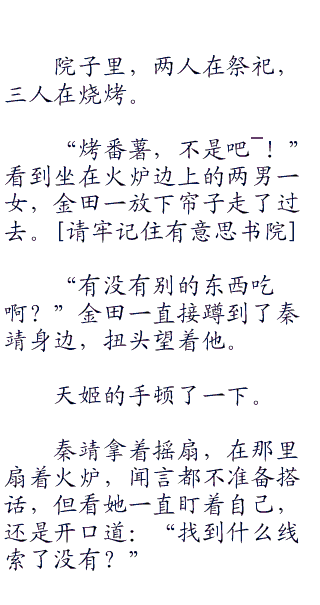 院子里，两人在祭祀，
三人在烧烤。
“烤番薯，不是吧¯！”
看到坐在火炉边上的两男一
女，金田一放下帘子走了过
去。[请牢记住有意思书院]
“有没有别的东西吃
啊？”金田一直接蹲到了秦
靖身边，扭头望着他。
天姬的手顿了一下。
秦靖拿着摇扇，在那里
扇着火炉，闻言都不准备搭
话，但看她一直盯着自己，
还是开口道：“找到什么线
索了没有？”